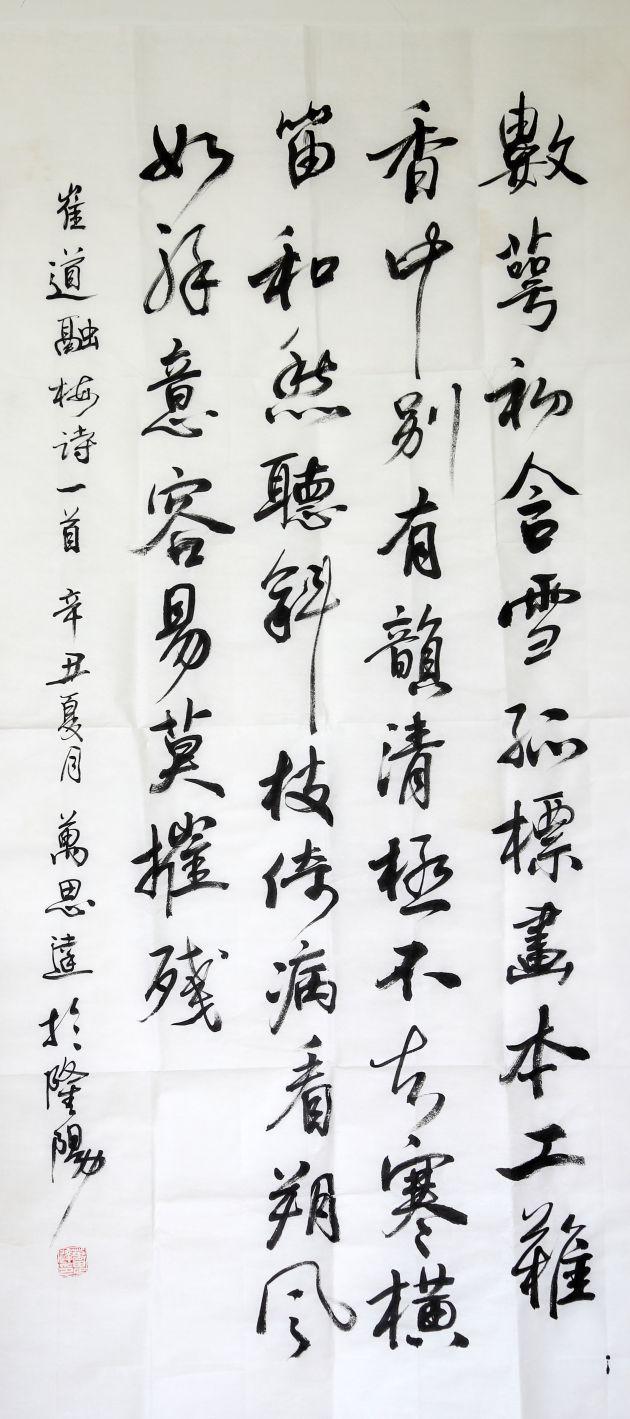 數萼初含雪孤標畫本工難
香中别有韻清極不知寒橫
笛和愁聽斜枝倚病看朔風
如解意容易莫摧殘
崔道融梅诗一首 辛丑夏月 萬思達於隆陽